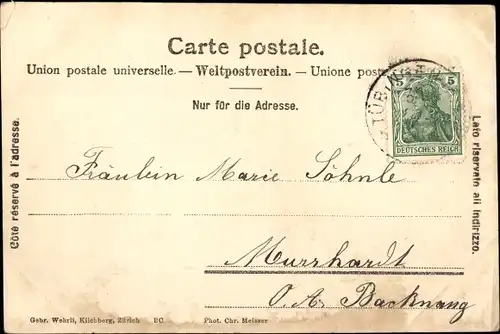 Carte postale.
Union postale universelle. — Weltpostverein. — Unione post
Nur für die Adresse.
Côté réservé à l'adresse.
TÜBINGEN
5 5
DEUTSCHES REICH
Lato riservato all indirizzo.
Fräulein Marie Söhnle
Murrhardt
O. A. Backnang
Gebr. Wehrli, Kilchberg, Zürich EC Phot. Chr. Meisser